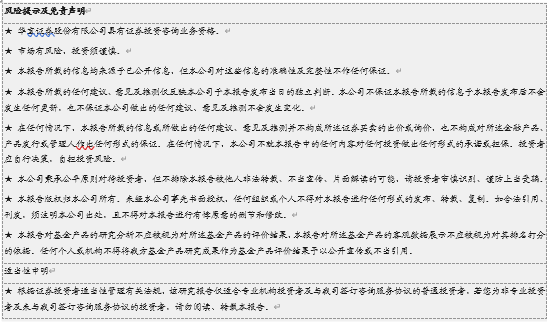 风险提示及免责声明
★ 华宝证券股份有限公司具有证券投资咨询业务资格。
★ 市场有风险，投资须谨慎。
★ 本报告所载的信息均来源于已公开信息，但本公司对这些信息的准确性及完整性不作任何保证。
★ 本报告所载的任何建议、意见及推测仅反映本公司于本报告发布当日的独立判断。本公司不保证本报告所载的信息于本报告发布后不会
发生任何更新，也不保证本公司做出的任何建议、意见及推测不会发生变化。
★ 在任何情况下，本报告所载的信息或所做出的任何建议、意见及推测并不构成所述证券买卖的出价或询价，也不构成对所述金融产品、
产品发行或管理人作出任何形式的保证。在任何情况下，本公司不就本报告中的任何内容对任何投资做出任何形式的承诺或担保。投资者
应自行决策，自担投资风险。
★ 本公司秉承公平原则对待投资者，但不排除本报告被他人非法转载、不当宣传、片面解读的可能，请投资者审慎识别、谨防上当受骗。
★ 本报告版权归本公司所有。未经本公司事先书面授权，任何组织或个人不得对本报告进行任何形式的发布、转载、复制。如合法引用、
刊发，须注明本公司出处，且不得对本报告进行有悖原意的删节和修改。
★ 本报告对基金产品的研究分析不应被视为对所述基金产品的评价结果，本报告对所述基金产品的客观数据展示不应被视为对其排名打分
的依据。任何个人或机构不得将我方基金产品研究成果作为基金产品评价结果予以公开宣传或不当引用。
适当性申明
★ 根据证券投资者适当性管理有关法规，该研究报告仅适合专业机构投资者及与我司签订咨询服务协议的普通投资者，若您为非专业投资
者及未与我司签订咨询服务协议的投资者，请勿阅读、转载本报告。